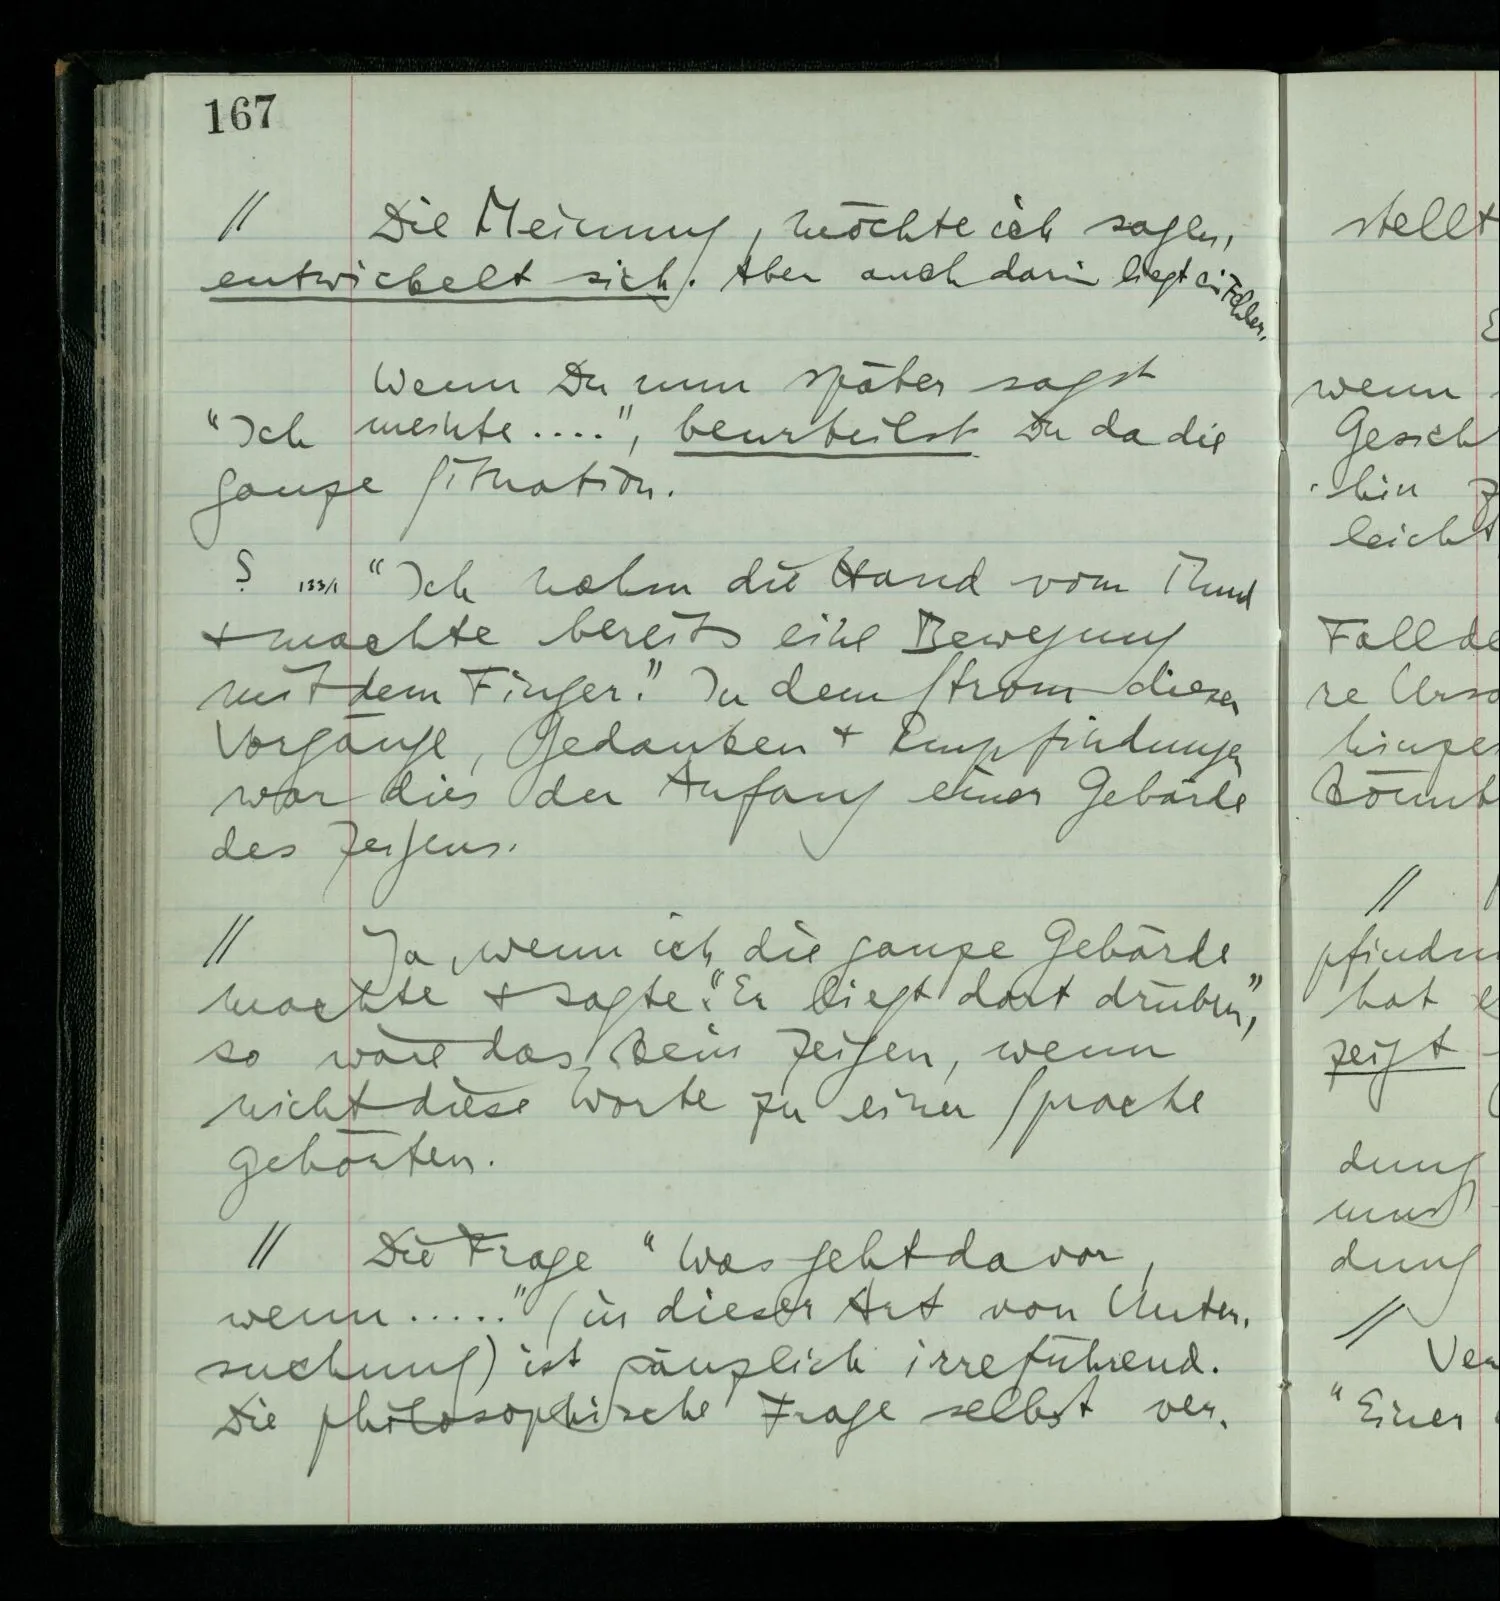 167
// Die Meinung, möchte ich sagen,
entwickelt sich. Aber auch darin liegt ein Fehler.
Wenn Du nun später sagst
"Ich meinte....", beurteilst Du da die
ganze Situation.
S 133/1 "Ich nahm die Hand vom Mund
+ machte bereits eine Bewegung
mit dem Finger." In dem Strom dieser
Vorgänge, Gedanken + Empfindungen
war dies der Anfang einer Gebärde
des Zeigens.
// Ja, wenn ich die ganze Gebärde
machte + sagte: "Er liegt dort drüben",
so wäre das kein Zeigen, wenn
nicht diese Worte zu einer Sprache
gehörten.
// Die Frage "Was geht da vor,
wenn....." (in dieser Art von Unter-
suchung) ist gänzlich irreführend.
Die philosophische Frage selbst ver-
stellt
wenn
Gesich
hin
leicht
Fall de
re Ursa
hinzu
könnt
//
pfindun
hat
zeigt
dung
und
dung
//
Ver
"Einer